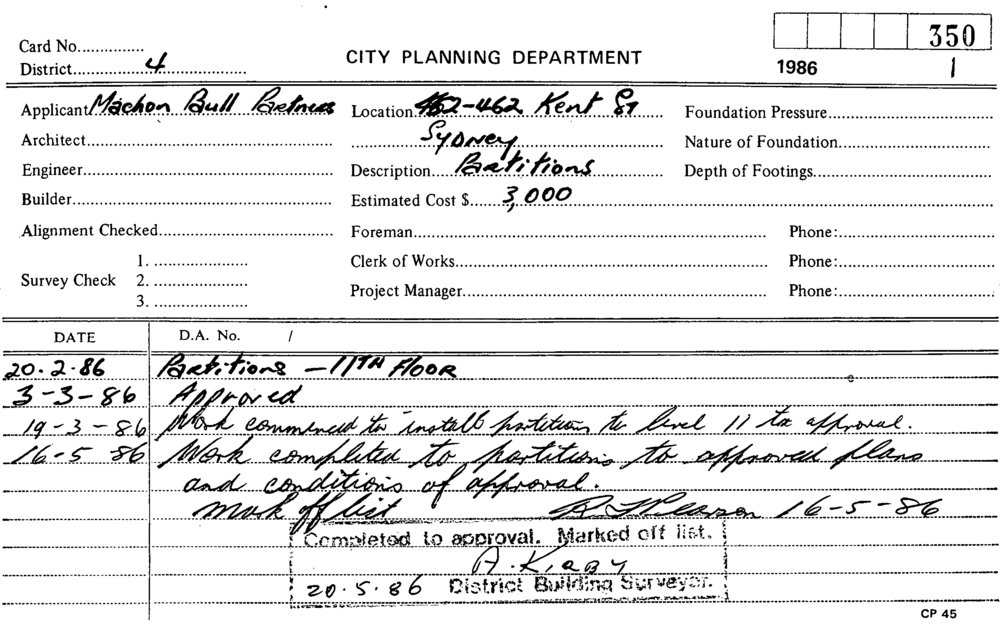 350
Card No...............
District.......4.......
CITY PLANNING DEPARTMENT
1986 1
Applicant Machon Bull Partners Location 452-462 Kent St Foundation Pressure
Architect Sydney Nature of Foundation
Engineer Description Partitions Depth of Footings
Builder Estimated Cost $ 3,000
Alignment Checked Foreman Phone:
1. Clerk of Works Phone:
Survey Check 2.
Project Manager Phone:
3.
DATE D.A. No. /
20.2.86 Partitions - 11TH FLOOR
3-3-86 Approved
19-3-86 Work commenced to install partitions to level 11 to approval.
16-5 86 Work completed to partitions to approved plans
and conditions of approval.
Mark off list 16-5-86
Completed to approval. Marked off list.
A. Kirby
20.5.86 District Building Surveyor.
CP 45